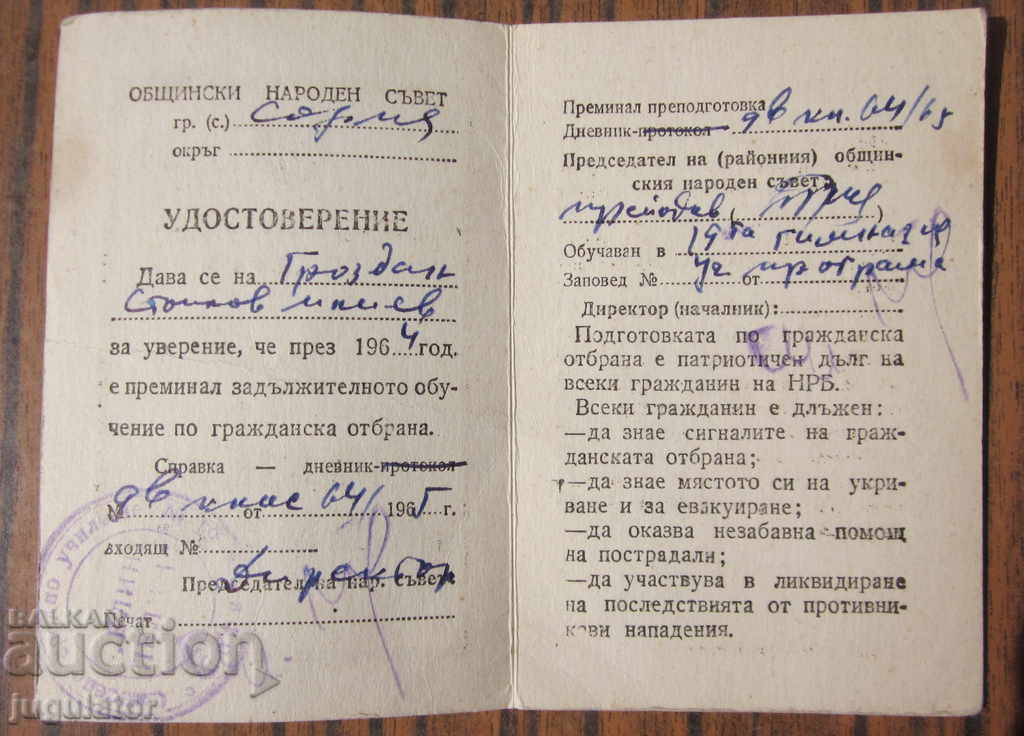 ОБЩИНСКИ НАРОДЕН СЪВЕТ
гр. (с.) София
окръг
УДОСТОВЕРЕНИЕ
Дава се на Гроздан
Стоилов Илиев
за уверение, че през 1964 год.
е преминал задължителното обу-
чение по гражданска отбрана.
Справка — дневник-протокол
№ дв клас от 64/ 1965 г.
входящ №
Председател на нар. съвет:
Директор
Печат
Преминал преподготовка
Дневник-протокол дв кл. 64/65
Председател на (районния) общин-
ския народен съвет:
преподав ( )
Обучаван в 19та гимназия
Заповед № уч от програма
Директор (началник):
Подготовката по гражданска
отбрана е патриотичен дълг на
всеки гражданин на НРБ.
Всеки гражданин е длъжен:
—да знае сигналите на граж-
данската отбрана;
—да знае мястото си на укри-
ване и за евакуиране;
—да оказва незабавна помощ
на пострадали;
—да участвува в ликвидиране
на последствията от противни-
кови нападения.
BALKAN
auction
jugulator